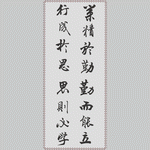 業精於勤勤而能立
行成於思思則必学